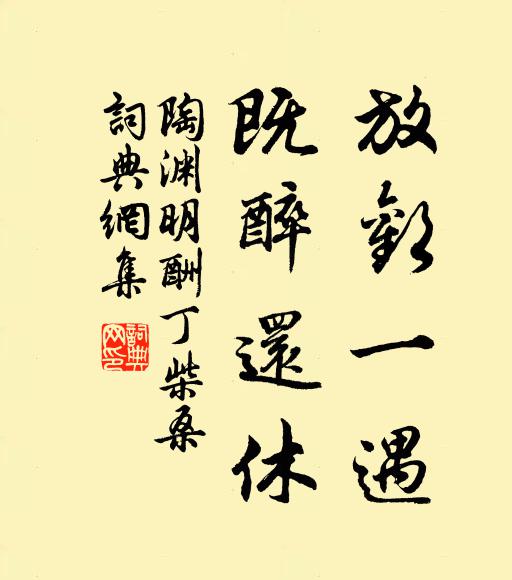 放歡一遇
既醉還休
陶渊明酬丁柴桑
詞典網集
詞典网印